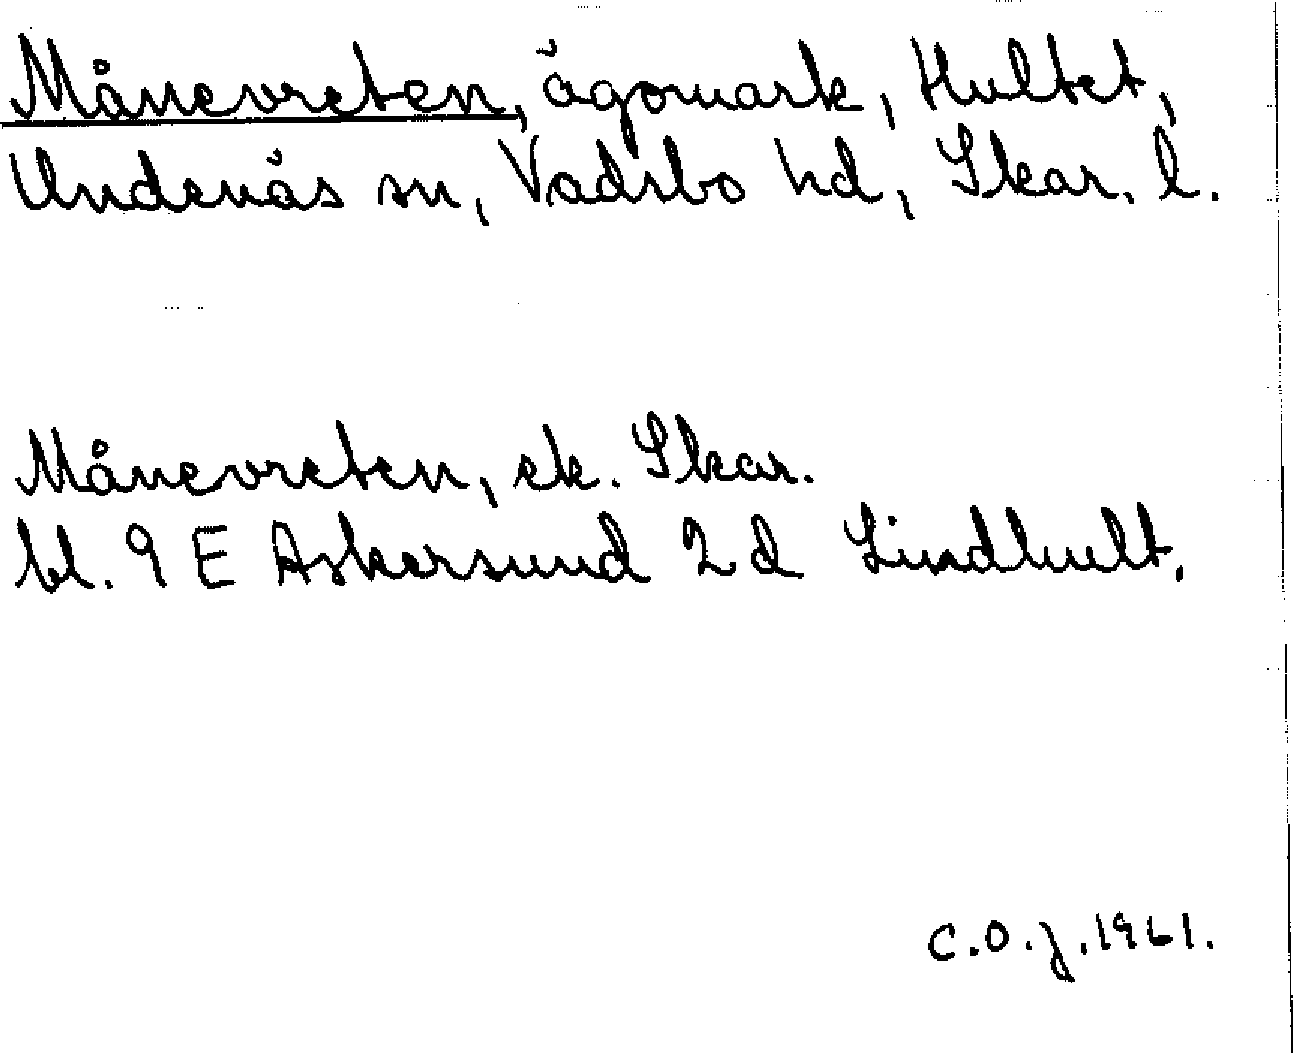 Månevreten, ägomark, Hultet,
Undenäs sn, Vadsbo hd, Skar. l.
Månevreten, ek. Skar.
bl. 9 E Askersund 2 d Lindhult.
C.O.J. 1961.